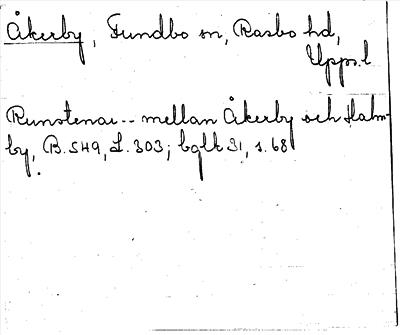 Åkerby, Fundbo sn, Rasbo hd,
Upps. l.
Runstenar -- mellan Åkerby och Halm-
by, B. 549, L. 303; bglt 31, s. 68